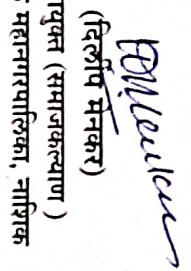 (दिलीप मेनकर)
युक्त (समाजकल्याण)
महानगरपालिका, नाशिक